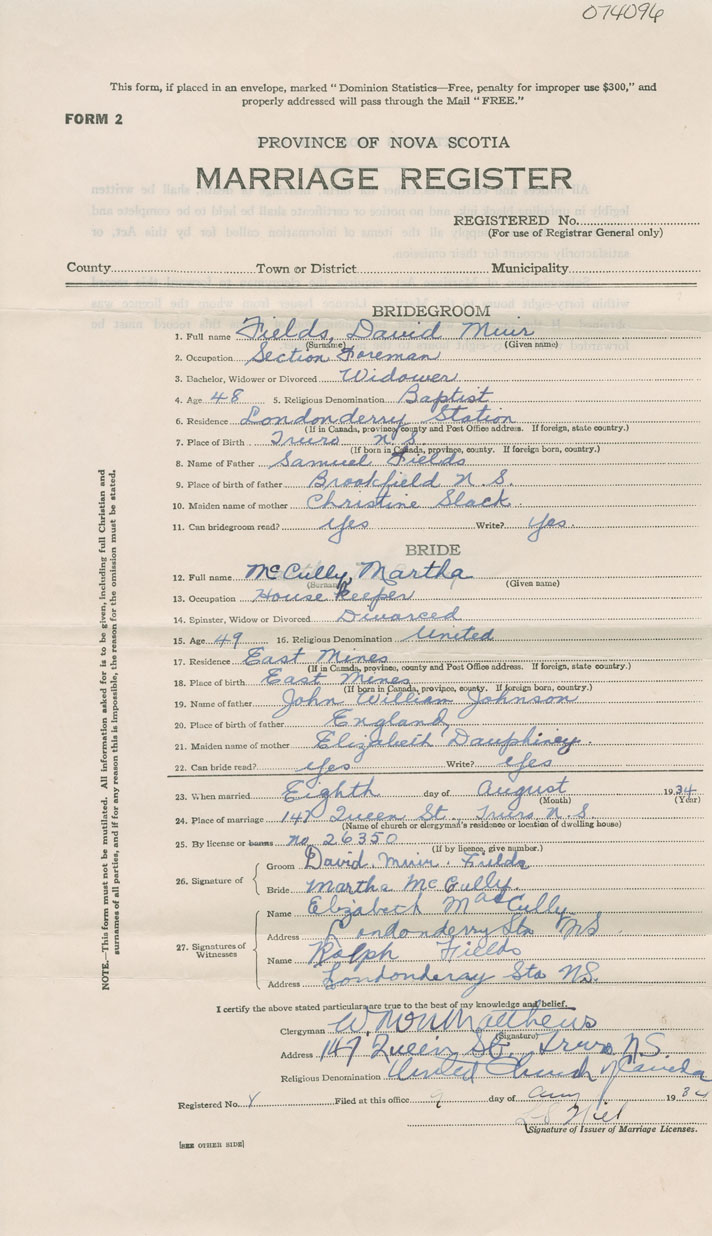 074096
This form, if placed in an envelope, marked "Dominion Statistics—Free, penalty for improper use $300," and
properly addressed will pass through the Mail "FREE."
FORM 2
PROVINCE OF NOVA SCOTIA
MARRIAGE REGISTER
REGISTERED No.
(For use of Registrar General only)
County Town or District Municipality
BRIDEGROOM
1. Full name Fields, David Muir
(Surname) (Given name)
2. Occupation Section Foreman
3. Bachelor, Widower or Divorced Widower
4. Age 48 5. Religious Denomination Baptist
6. Residence Londonderry Station
(If in Canada, province, county and Post Office address. If foreign, state country.)
7. Place of Birth Truro N.S.
(If born in Canada, province, county. If foreign born, country.)
8. Name of Father Samuel Fields
9. Place of birth of father Brookfield N.S.
10. Maiden name of mother Christine Slack
11. Can bridegroom read? Yes Write? Yes.
BRIDE
12. Full name McCully, Martha
(Surname) (Given name)
13. Occupation House Keeper
14. Spinster, Widow or Divorced Divorced
15. Age 49 16. Religious Denomination United
17. Residence East Mines
(If in Canada, province, county and Post Office address. If foreign, state country.)
18. Place of birth East Mines
(If born in Canada, province, county. If foreign born, country.)
19. Name of father John William Johnson
20. Place of birth of father England
21. Maiden name of mother Elizabeth Dauphiney.
22. Can bride read? Yes Write? Yes
23. When married Eighth day of August 1934
(Month) (Year)
24. Place of marriage 147 Queen St. Truro N.S.
(Name of church or clergyman's residence or location of dwelling house)
25. By license or banns no. 26350
(If by licence, give number.)
26. Signature of Groom David Muir Fields
Bride Martha McCully.
27. Signatures of Witnesses
Name Elizabeth MacCully
Address Londonderry Sta NS.
Name Ralph Fields
Address Londonderay Sta NS.
I certify the above stated particulars are true to the best of my knowledge and belief.
Clergyman Matthews
(Signature)
Address 147 Queen St. Truro N.S.
Religious Denomination United Church of Canada
Registered No. Filed at this office 9 day of Aug 1934
Signature of Issuer of Marriage Licenses.
[SEE OTHER SIDE]
NOTE.—This form must not be mutilated. All information asked for is to be given, including full Christian and
surnames of all parties, and if for any reason this is impossible, the reason for the omission must be stated.